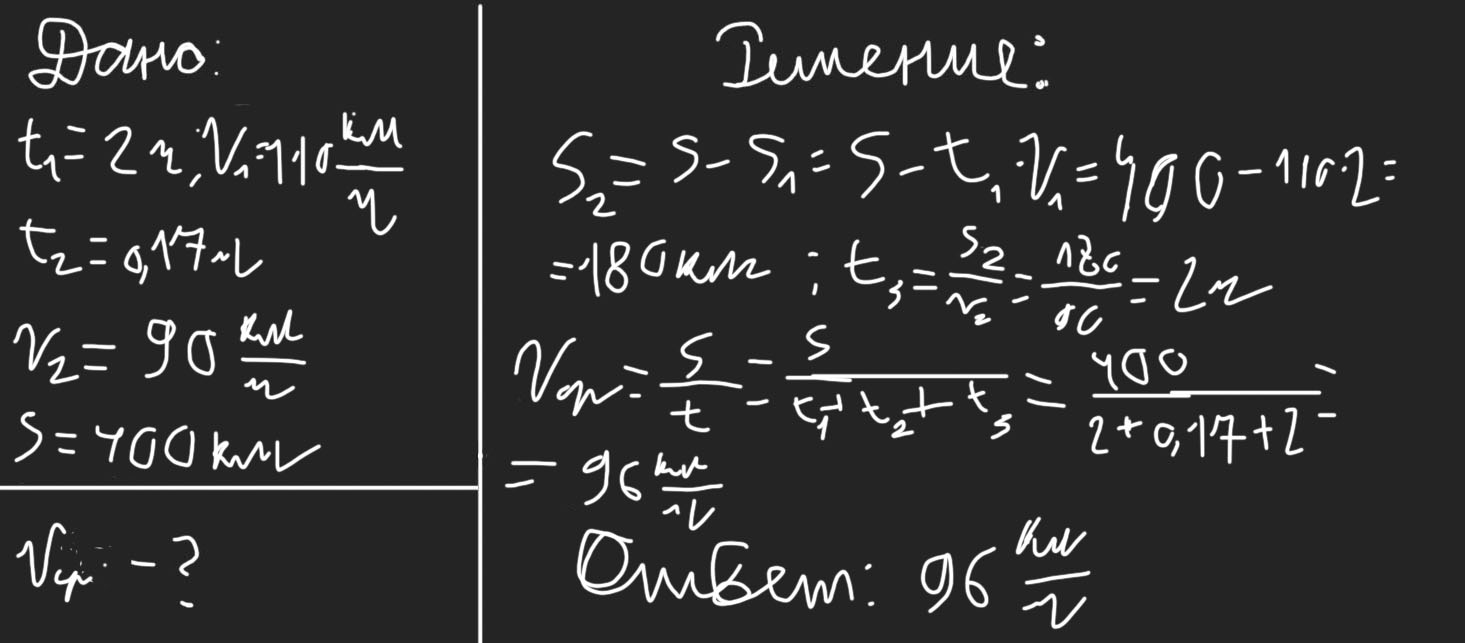 Дано:
t₁ = 2 ч; V₁ = 110 км/ч
t₂ = 0,17 ч
V₂ = 90 км/ч
S = 400 км
Vср - ?
Решение:
S₂ = S - S₁ = S - t₁ · V₁ = 400 - 110 · 2 =
= 180 км ; t₃ = S₂/V₂ = 180/90 = 2 ч
Vср = S/t = S/(t₁ + t₂ + t₃) = 400/(2 + 0,17 + 2) =
= 96 км/ч
Ответ: 96 км/ч